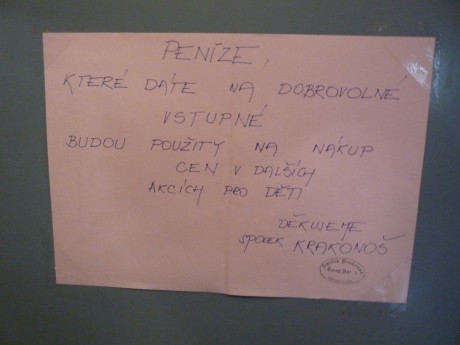 PENÍZE,
KTERÉ DÁTE NA DOBROVOLNÉ
VSTUPNÉ
BUDOU POUŽITY NA NÁKUP
CEN V DALŠÍCH
AKCÍCH PRO DĚTI
DĚKUJEME
SPOLEK KRAKONOŠ